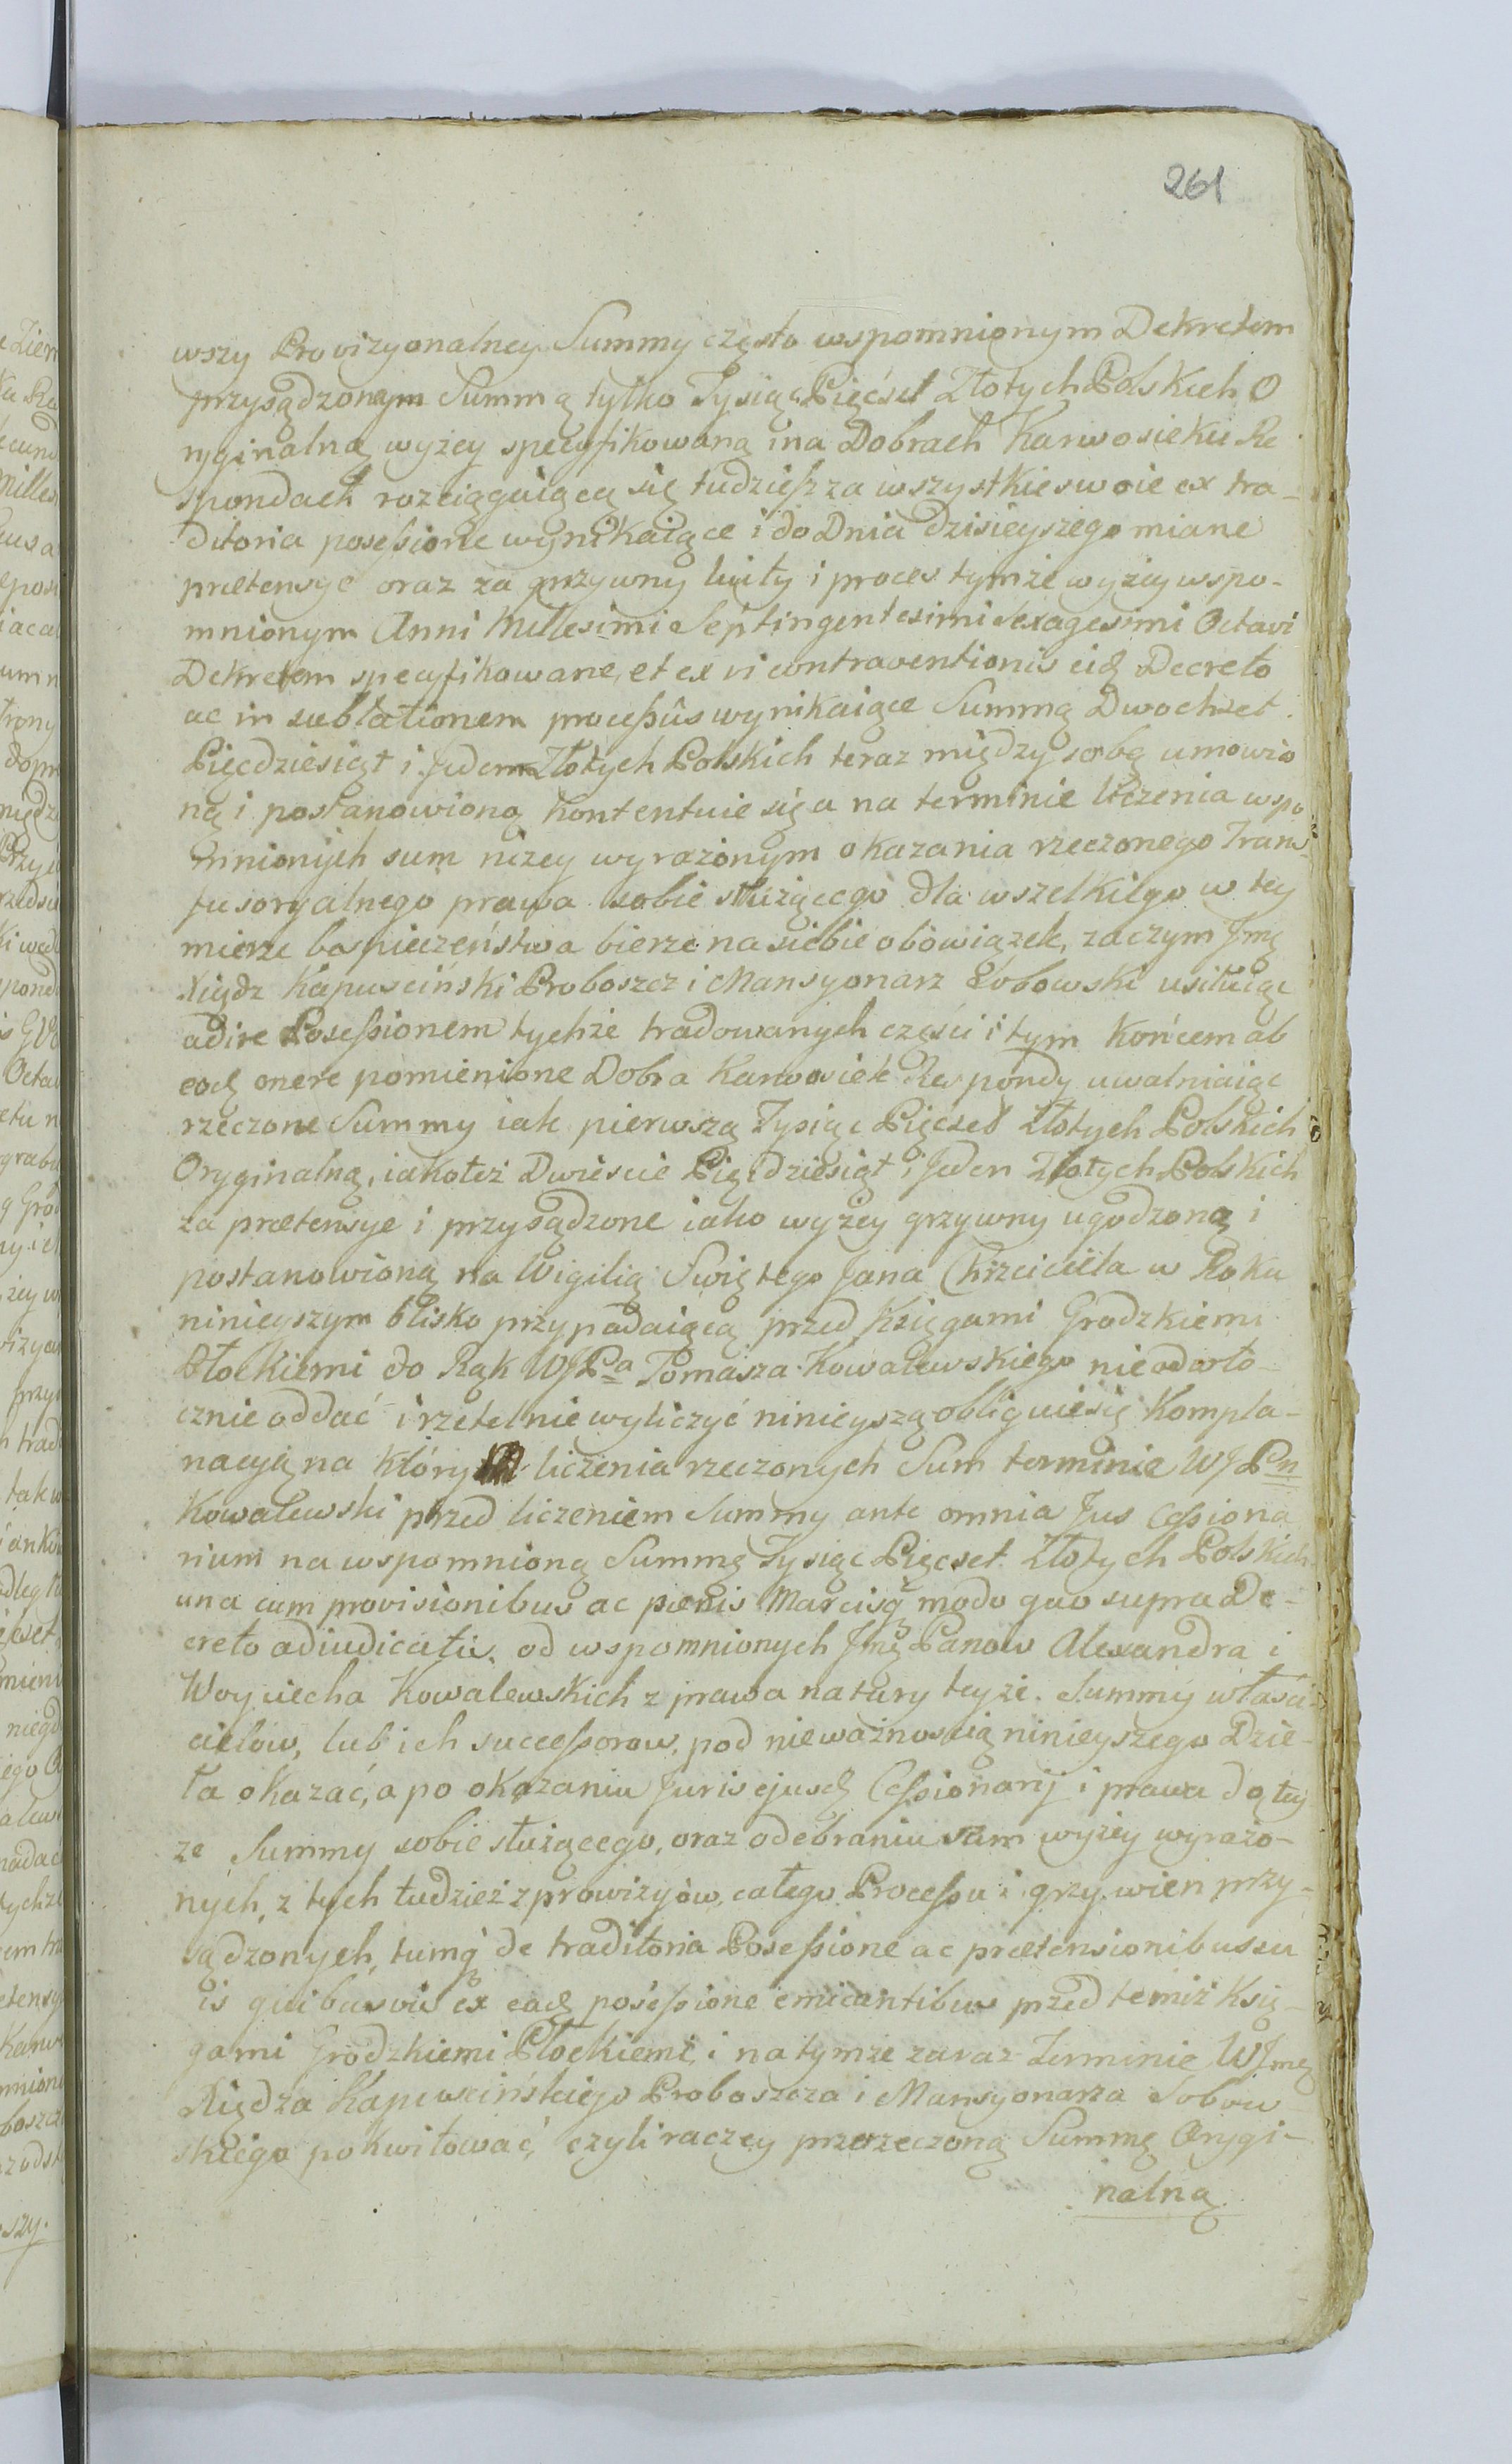 261
wszy Prowizyonalney Summy często wspomnionym Dekretem
przysądzonym Summą tylko Tysiąc Pięćset Złotych Polskich O
ryginalną wyżey specyfikowaną ina Dobrach Karwosieku Re
spondach rozciągaiącą się tudzieſz za wszystkie swoie ex tra-
ditoria poseſsione wynikaiące i do Dnia dzisieyszego miane
prætensye oraz za grzywny luity i proces tymże wyżey wspo-
mnionym Anni Millesimi Septingentesimi Sexagesimi Octavi
Dekretem specyfikowane, et ex vi contraventionis eid Decreto
ac in sublationem proceſsûs wynikaiące Summą Dwochset
Pięcdziesiąt i Jedem Złotych Polskich teraz między sobą umowio
ną i postanowioną kontentuie się a na terminie liczenia wspo
mnionych sum niżey wyrażonym okazania rzeczonego Trans-
fusoryalnego prawa sobie służącego dla wszelkiego w tey
mierze baspieczeństwa bierze na siebie obowiązek, zaczym Jmę
Xiądz Kapuscinski Proboszcz i Mansyonarz Łobowski usiłuiąc
adire Poseſsionem tychże tradowanych części i tym końcem ab
eod onere pomienione Dobra Karwosiek Respondy uwalniaiąc
rzeczone Summy iak pierwszą Tysiąc Pięcset Złotych Polskich
Oryginalną, iakoteż Dwieście Pięcdziesiąt i Jeden Złotych Polskich
za prætensye i przysądzone iako wyżey grzywny ugodzoną i
postanowioną na Wigilią Swiętego Jana Chrzciciela w Roku
ninieyszym blisko przypadaiącą przed Księgami Grodzkiemi
Płockiemi do Rąk WJPa Tomasza Kowalewskiego nieodwło-
cznie oddać i rzetelnie wyliczyć ninieyszą obliguie się Kompla-
nacyą na który liczenia rzeczonych Sum terminie WJPn
Kowalewski przed liczeniem Summy ante omnia Jus Ceſsiona
rium na wspomnioną Summę Tysiąc Pięcset Złotych Polskich
una cum provisionibus ac pœnis Marcisq modo quo supra De-
creto adiudicatis, od wspomnionych Jmę Panow Alexandra i
Woyciecha Kowalewskich z prawa natury teyże Summy właści-
cielów, lub ich succeſsorow, pod nieważnością ninieyszego Dzie-
ła okazać, a po okazaniu Juris ejusd Ceſsionarij i prawa do tey
że Summy sobie służącego, oraz odebraniu sum wyżey wyrażo-
nych, z tych tudzież z prowizyów, całego Proceſsu i grzywien przy-
sądzonych, tumq de traditoria Poseſsione ac prætensionibus su
is quibusvis ex ead poseſsione emicantibus przed temiż Księ-
gami Grodzkiemi Płockiemi, i na tymże zaraz Terminie WJmę
Xiędza Kapuscińskiego Proboszcza i Mansyonarza Łobow
skiego pokwitować, czyli raczey przerzeczoną Summę Orygi-
nalną